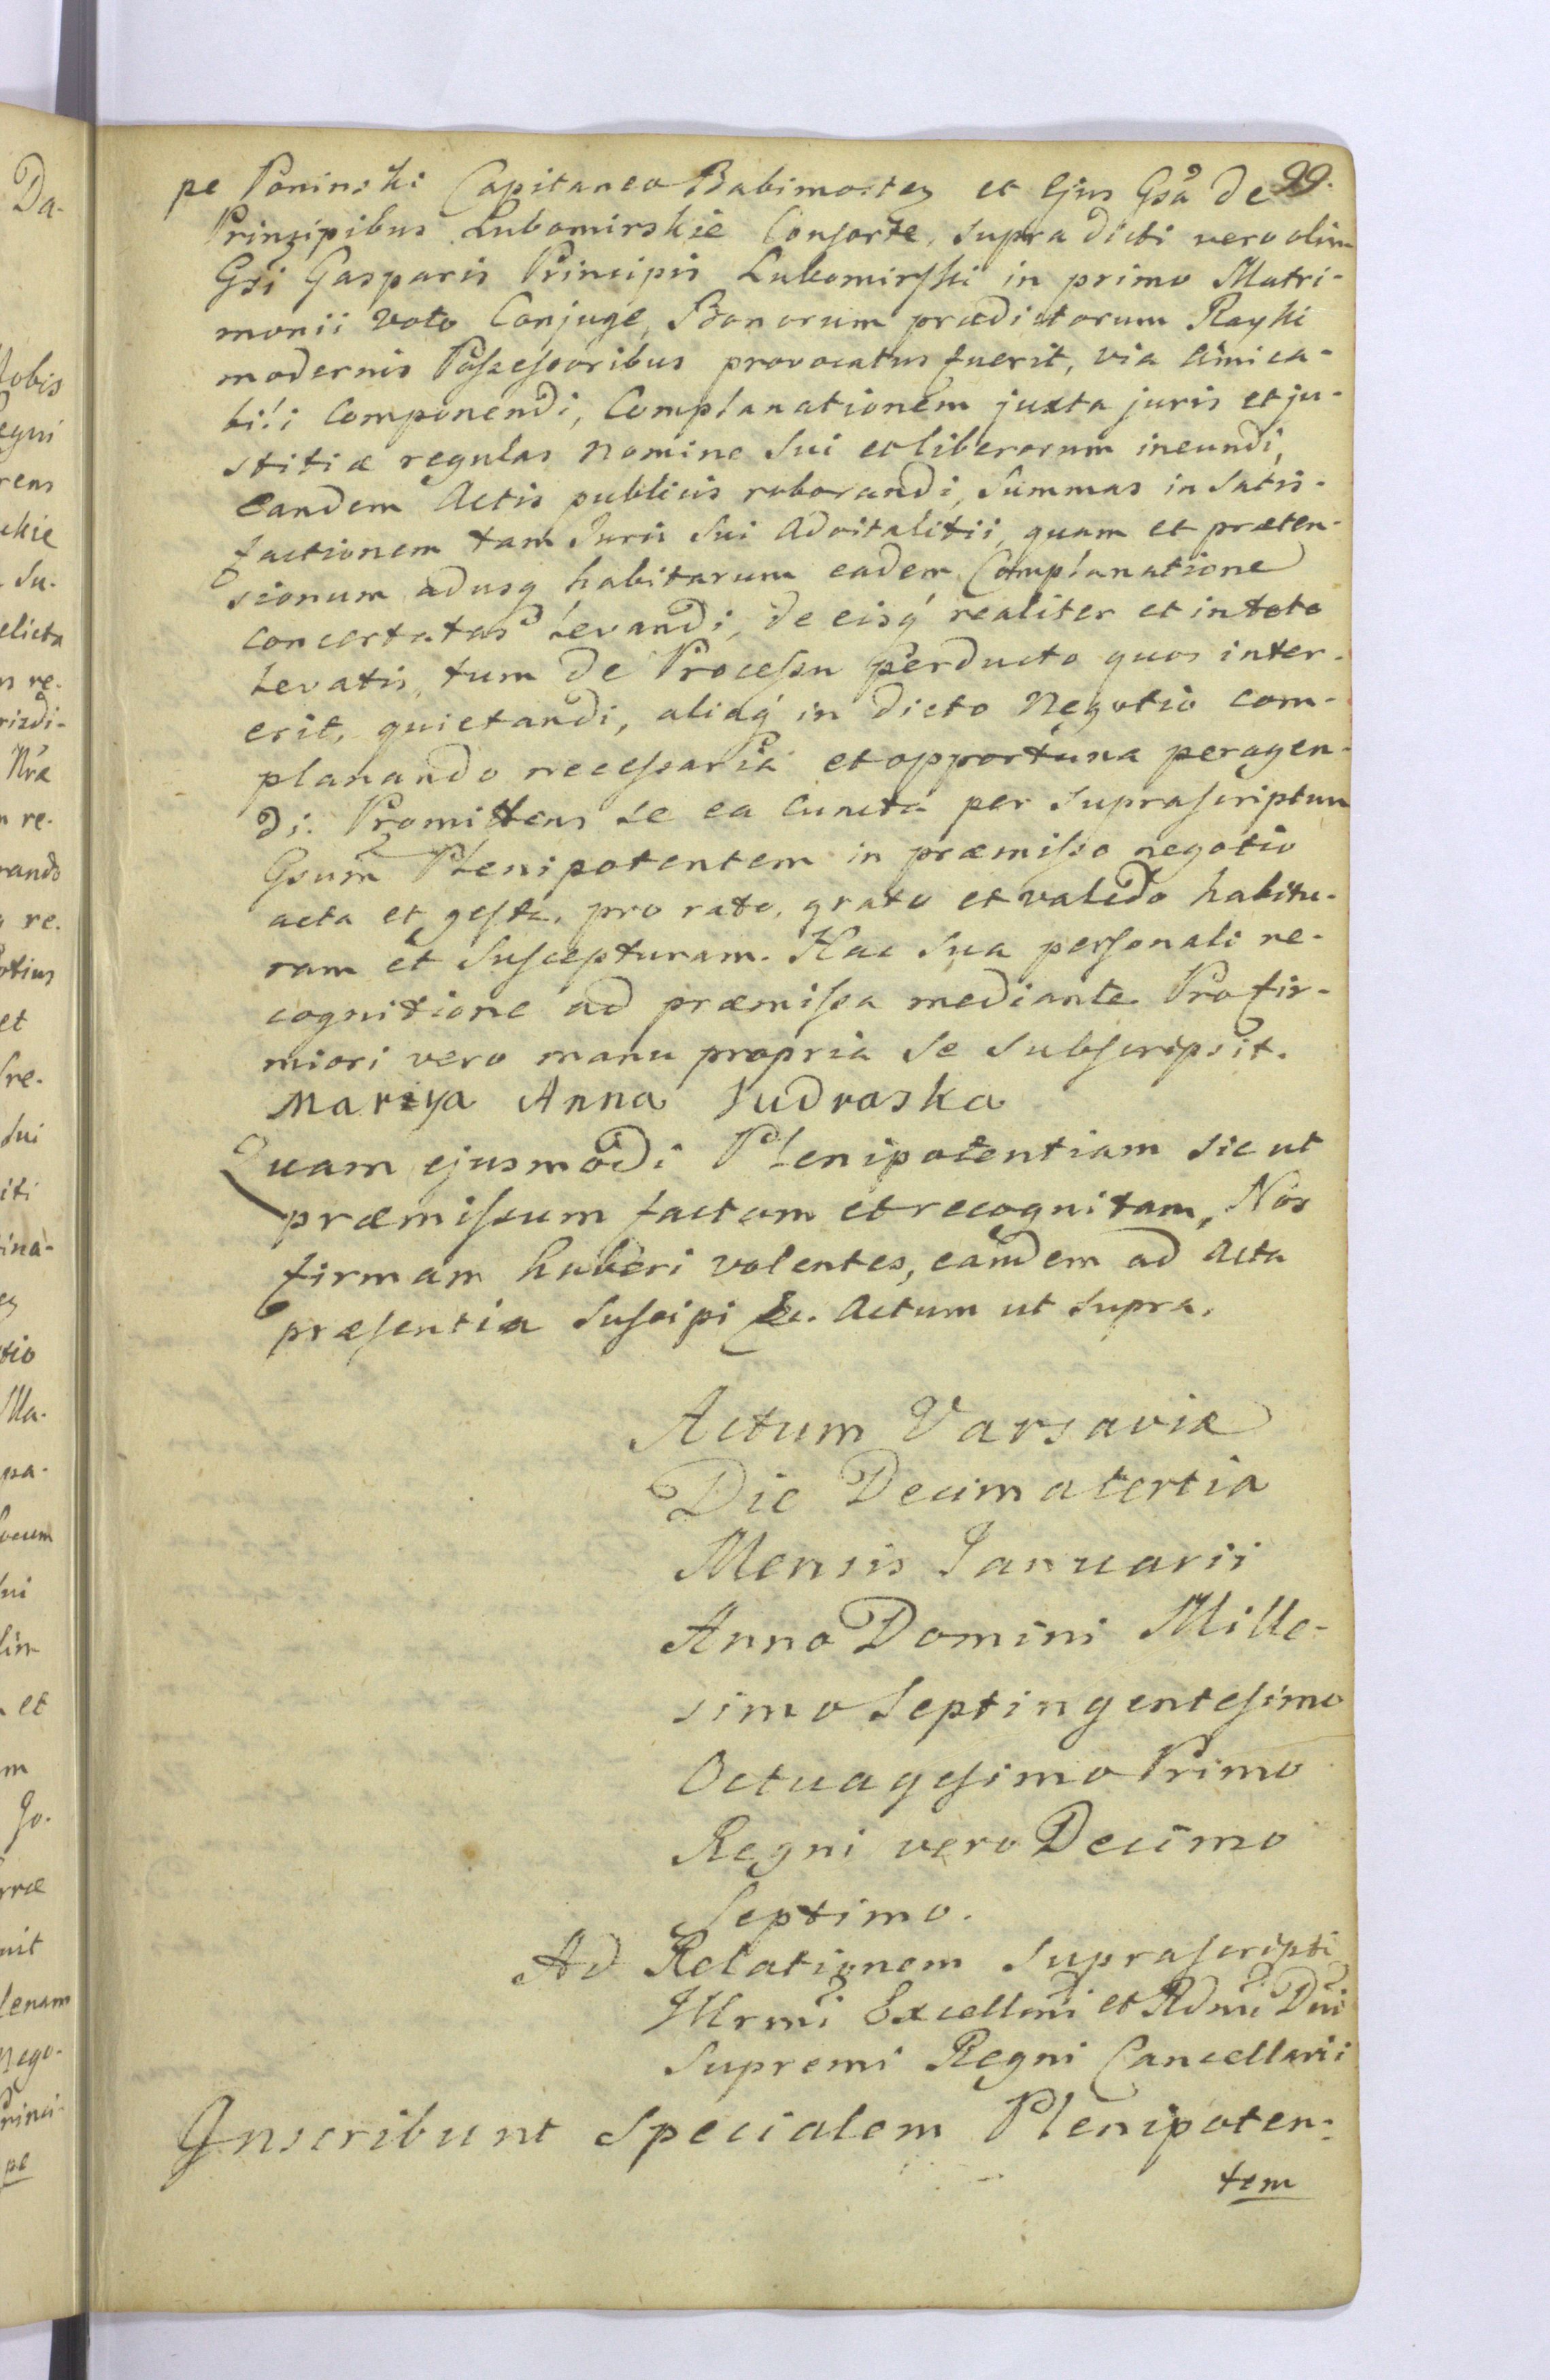 99.
pe Poninski Capitaneo Babimosten et Ejus Gsa de
Principibus Lubomirskie Consorte, supra dicti vero olim
Gsi Gasparis Principis Lubomirski in primo Matri-
monii voto Conjuge, Bonorum prædictorum Rayki
modernis Possessoribus provocatus fuerit, via amica-
bili componendi, Complanationem juxta juris et ju-
stitiæ regulas nomine sui et liberorum ineundi,
eandem Actis publicis roborandi, Summas in satis-
factionem tam Juris sui advitalitii, quam et præten-
sionum adusq habitarum eadem Complanatione
concertatas levandi, de eisq́ realiter et in toto
levatis, tum de Processu perducto quos inter-
erit, quietandi, aliaq́ in dicto Negotio com-
planando necessaria et opportuna peragen-
di. Promittens se ea cuncta per suprascriptum
Gsum Plenipotentem in præmisso negotio
acta et gesta, pro rato, grato et valido habitu-
ram et suscepturam. Hac sua personali re-
cognitione ad præmissa mediante. Pro fir-
miori vero manu propria se subscripsit.
Mariya Anna Sudraska
Quam ejusmodi Plenipotentiam sic ut
præmissum factam et recognitam, Nos
firmam haberi volentes, eandem ad Acta
præsentia suscipi &c. Actum ut supra.
Actum Varsaviæ
Die Decima tertia
Mensis Januarii
Anno Domini Mille-
simo Septingentesimo
Octuagesimo Primo
Regni vero Decimo
Septimo.
Ad Relationem suprascripti
Illrmi Excellmi et Rdmi Dni
Supremi Regni Cancellarii
Inscribunt Specialem Plenipoten-
tem